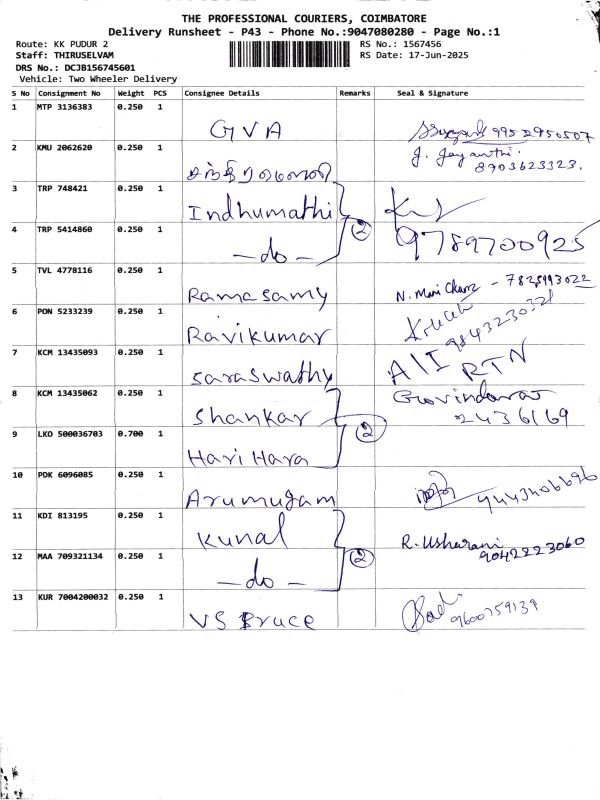 THE PROFESSIONAL COURIERS, COIMBATORE
Delivery Runsheet - P43 - Phone No.:9047080280 - Page No.:1
Route: KK PUDUR 2
RS No.: 1567456
Staff: THIRUSELVAM
RS Date: 17-Jun-2025
DRS No.: DCJB156745601
Vehicle: Two Wheeler Delivery
S No Consignment No Weight PCS Consignee Details Remarks Seal & Signature
1 MTP 3136383 0.250 1 GVA 9952950507
2 KMU 2062620 0.250 1 J. Jayanthi. 8903623323.
3 TRP 748421 0.250 1 Indhumathi
4 TRP 5414860 0.250 1 -do- 2 9789700925
5 TVL 4778116 0.250 1 Ramasamy N. - 7825993022
6 PON 5233239 0.250 1 Ravikumar
7 KCM 13435093 0.250 1 Saraswathy A11 RTN
8 KCM 13435062 0.250 1 Shankar Govindarao 2436169
9 LKO 500036703 0.700 1 Hari Hara 2
10 PDK 6096085 0.250 1 Arumugam 9443406696
11 KDI 813195 0.250 1 Kunal R. Usharani 9042223060
12 MAA 709321134 0.250 1 -do- 2
13 KUR 7004200032 0.250 1 VS Bruce 9600759139